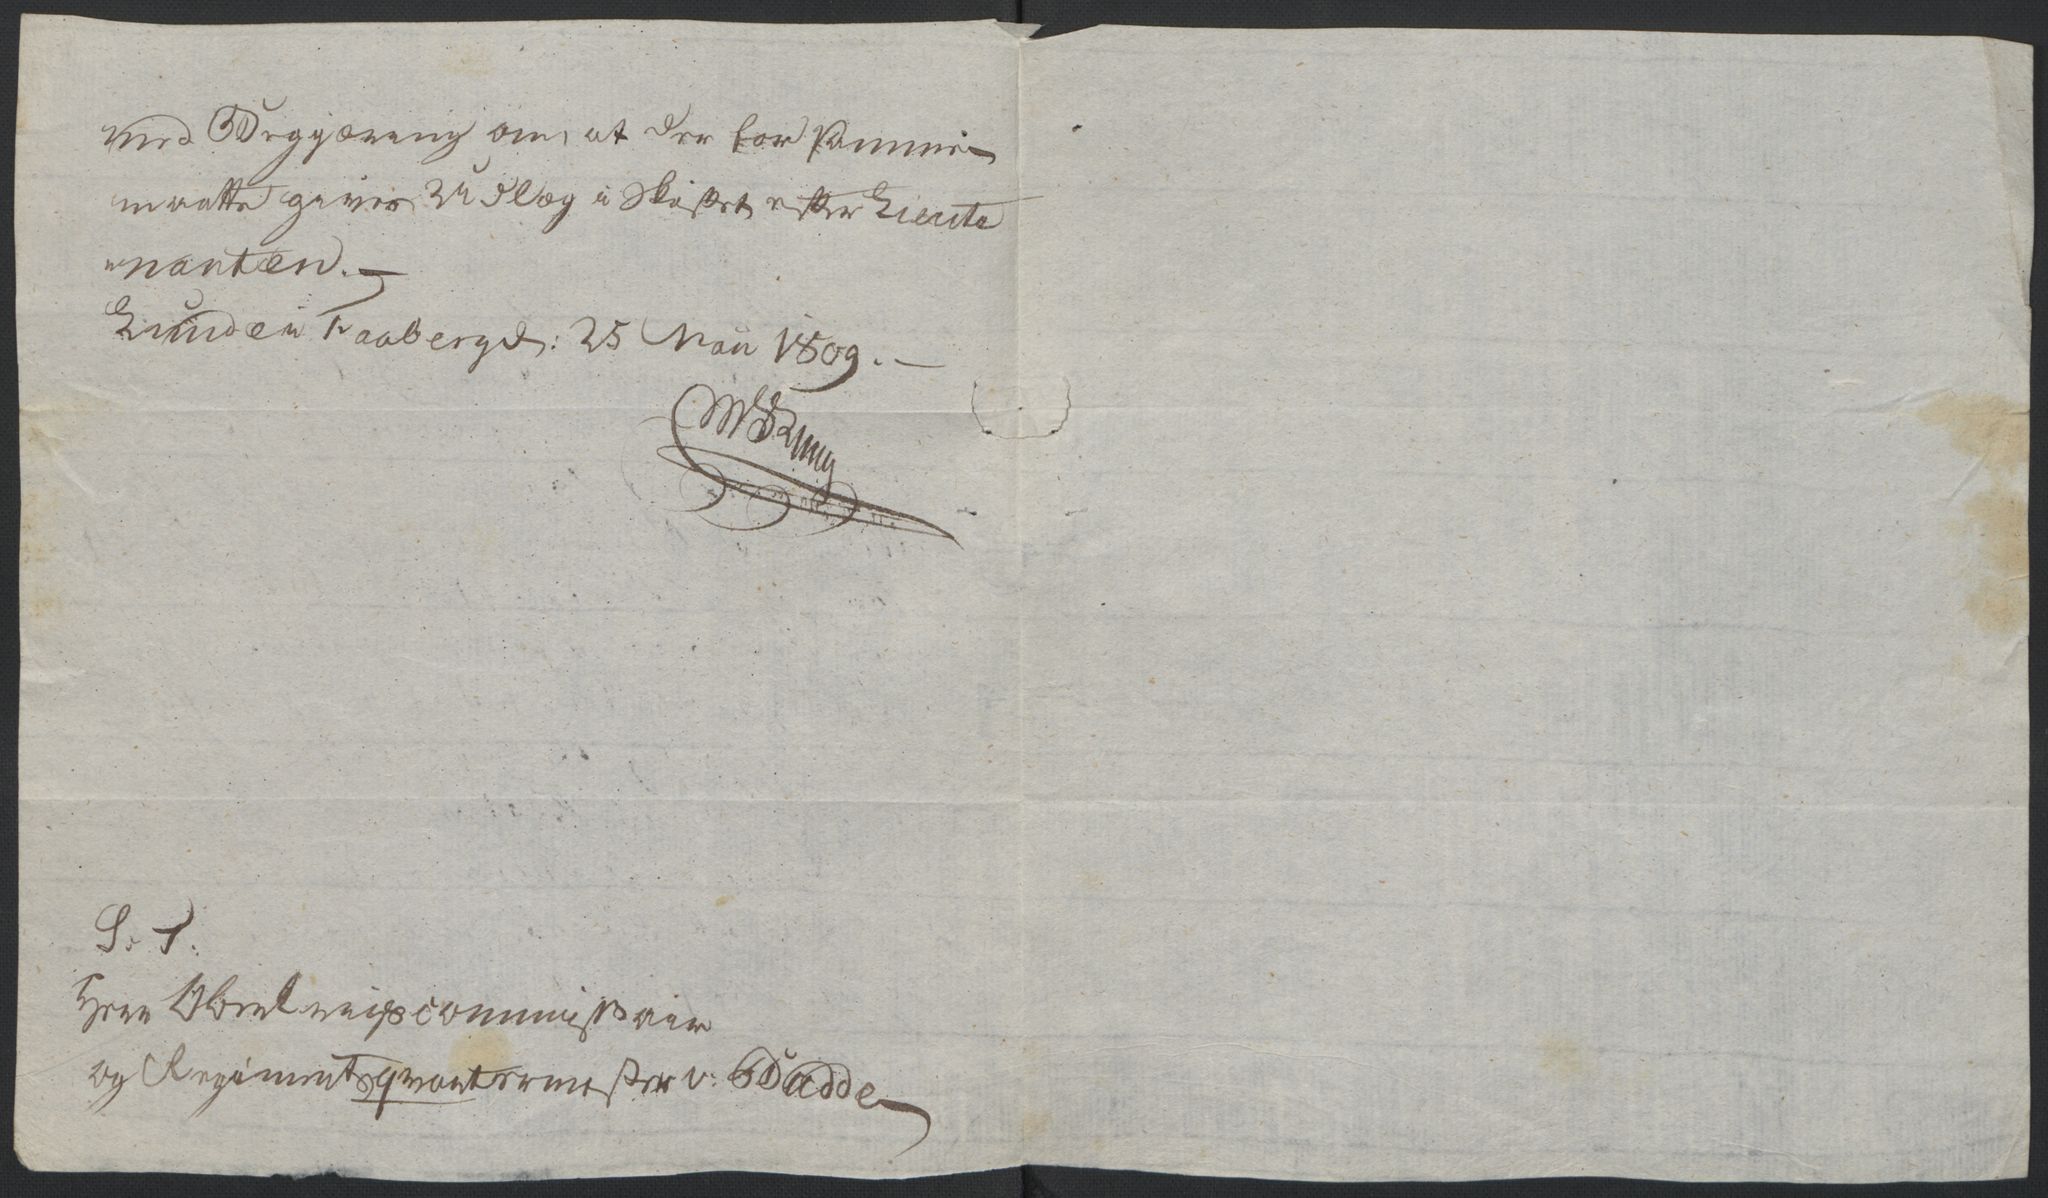 med Begjæring om, at der for samme
maatte gives Udlæg i Skiftet efter Lieute
nanten.
Lunde i Faaberg d: 25 Maii 1809.
S. T.
Herr Oberkrigscommissair
og Regimentsqvarteermester v: Budde